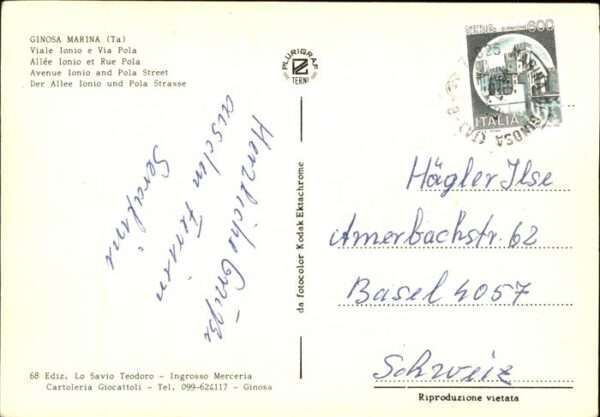 GINOSA MARINA (Ta)
Viale Ionio e Via Pola
Allée Ionio et Rue Pola
Avenue Ionio and Pola Street
Der Allee Ionio und Pola Strasse
PLURIGRAF
TERNI
600
ITALIA
GINOSA (TA)
Herzliche Grüße
aus den Ferien
Serafina
da fotocolor Kodak Ektachrome
Hägler Ilse
Amerbachstr. 62
Basel 4057
Schweiz
68 Ediz. Lo Savio Teodoro - Ingrosso Merceria
Cartoleria Giocattoli - Tel. 099-624117 - Ginosa
Riproduzione vietata